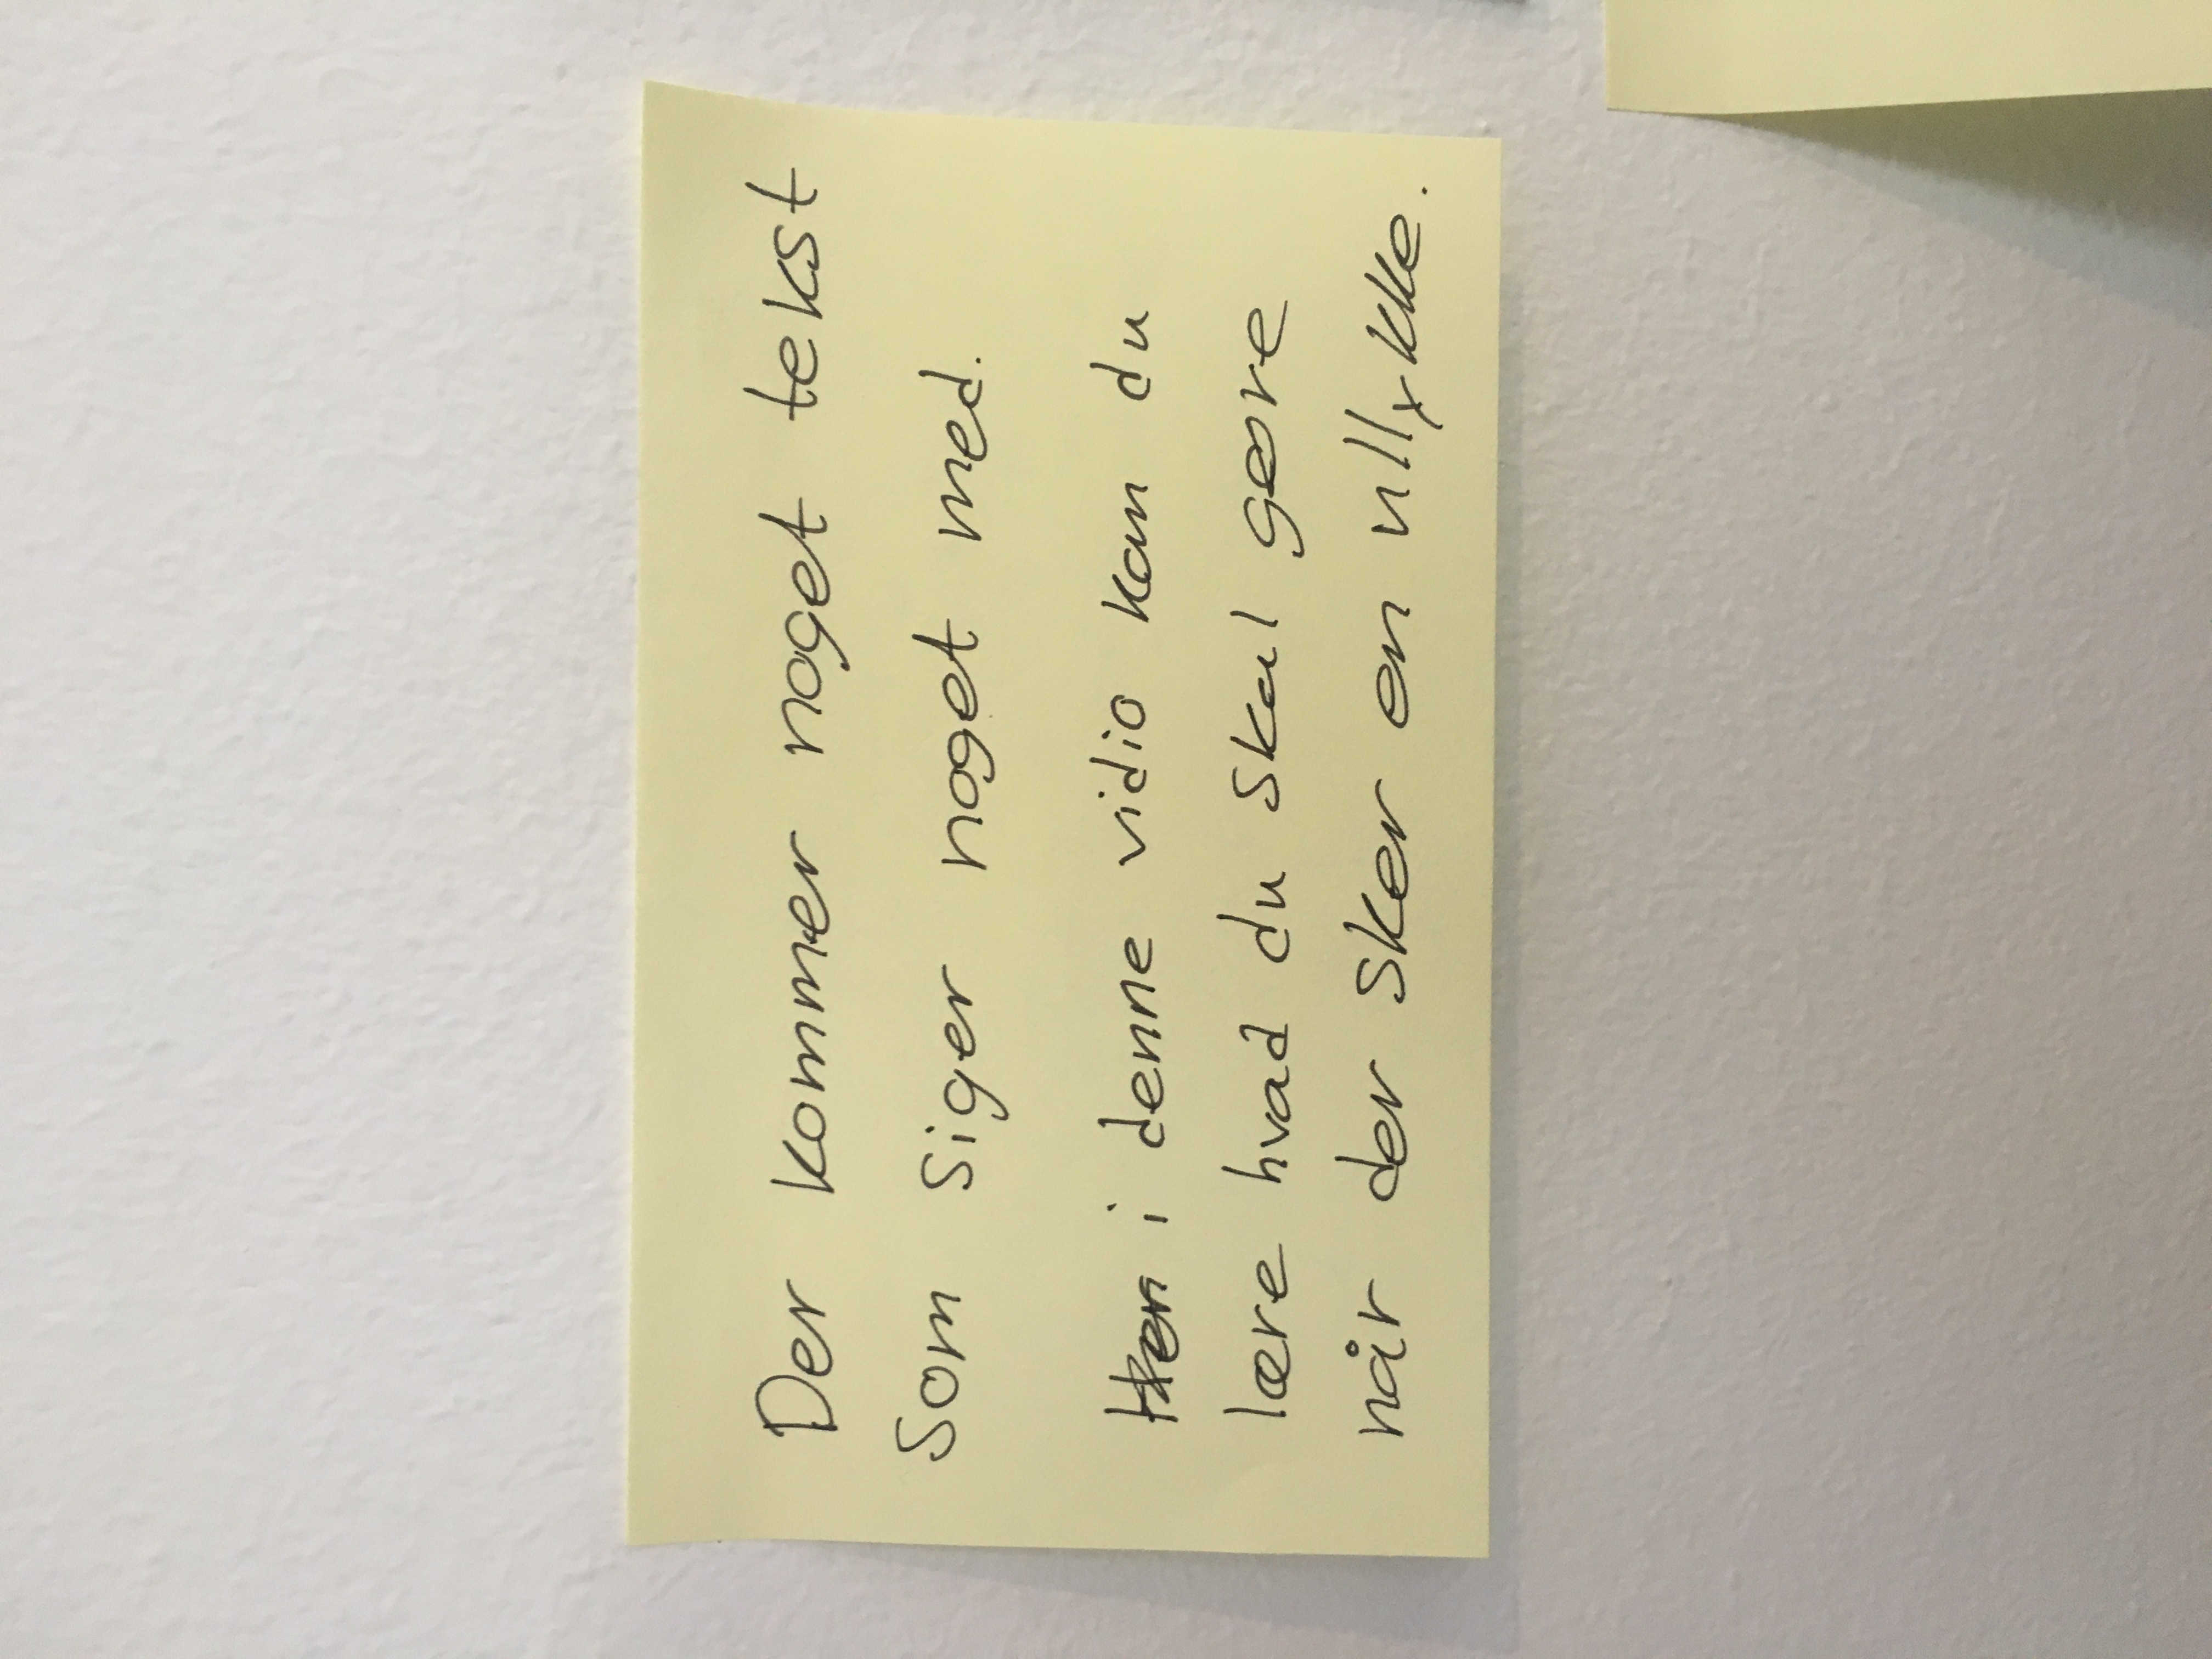 Der kommer noget tekst
som siger noget med.
i denne vidio kan du
lære hvad du skal gøre
når der sker en ullykke.